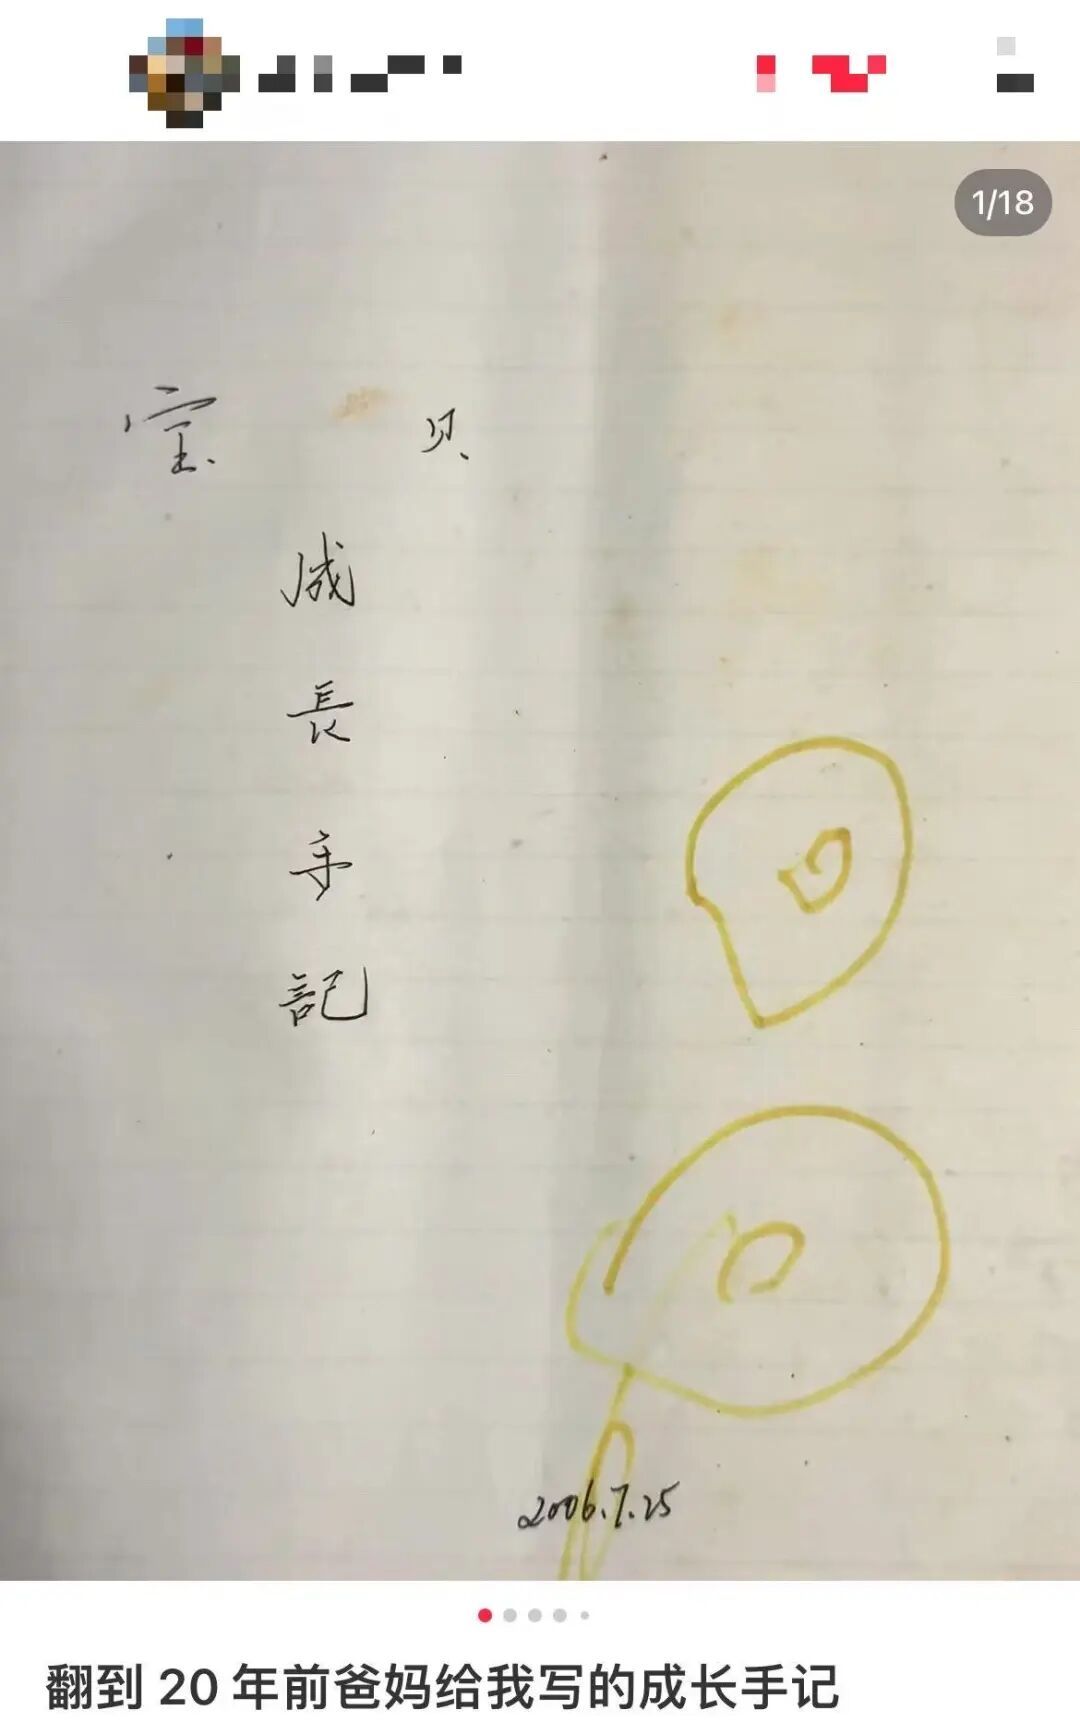 1/18
宝 贝
成
長
手
記
2006.7.25
翻到 20 年前爸妈给我写的成长手记